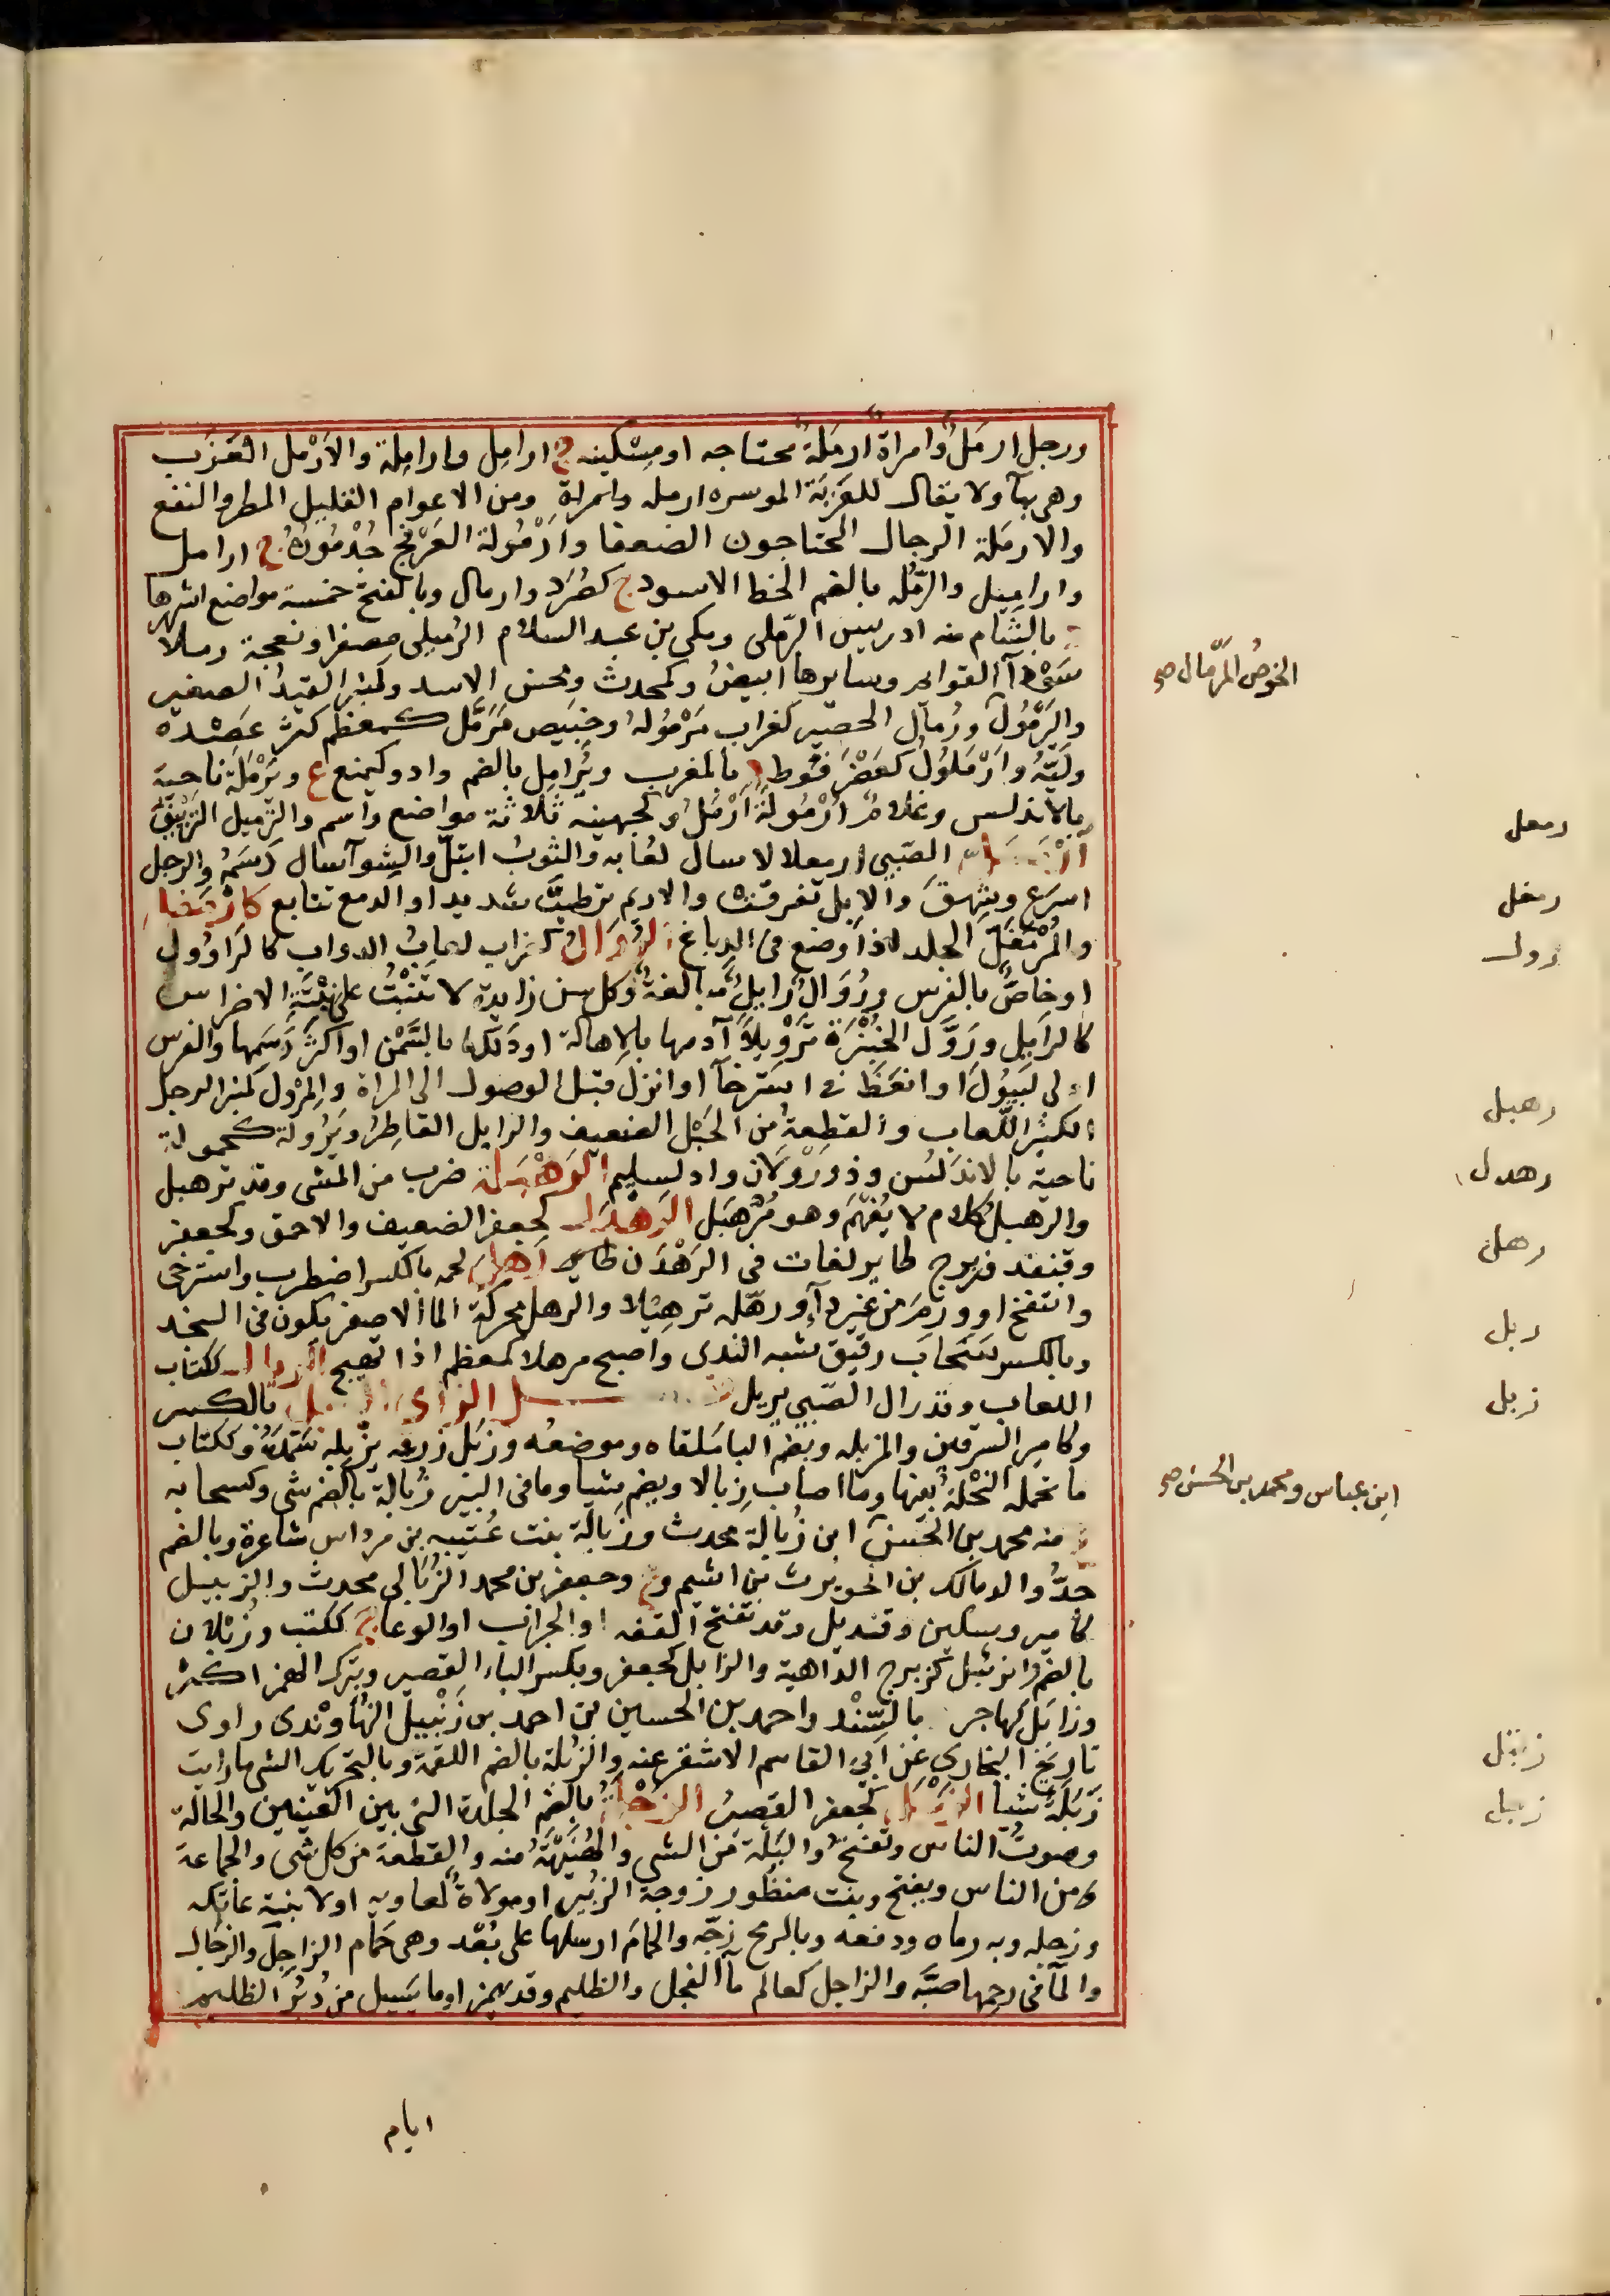 ورجل ارمل وامراة ارملة محتاجه او مسكينه ج ارامل وارامِلة والارْمل العَزَب
وهى بهآ ولا يقال للعَزَبَة الموسره ارمله وامراة ومن الاعوام القليل المطر والنفع
والارملة الرجال المحتاجون الضعفا وأُرْمُولة العَرْفج جُذْمُورُهُ ج ارامل
واراميل والرُّمْله بالضم الخط الاسود ج كصُرَد وارمال وبالفتح خمسة مواضع اشهرها
بالشام منه ادريس الرملى ومكى بن عبد السلام الرميلى مصغرا ونعجة رملا
سَوْدَآ القوايم وسايرها ابيض وكمحدث ومحسن الاسد وكمنبر القيد الصغير
والرَّمُول ورُمال الحصير كغراب مَرْمُولهُ وخبيص مُرَمَّل كمعظم كثر عَصْده
وليّهُ وارْمَلُول كعَضْرَفُوط بالمغرب ويُرامِل بالضم واد وكيمنع ع ويَرْمَلة ناحية
بالاندلس وغلام أُرْمُولَة أَرْمَل ولجهينه ثلاثة مواضع واسم والترميل التزييف
الصّبى ارمعلالا سال لعابه والثوبُ ابتلّ والشوآ سال دَسَمُه والرجل
اسرع وشهق والابل تفرقت والاديم ترطب شديدا والدمع تتابع كارمَغلّ
والمُرْمَغِلّ الجلد اذا وضع فى الدباغ الرُوَالُ كغراب لعابُ الدواب كالراوُول
او خاصٌّ بالفرس ورُوَال رايل مبالغة وكل سن زايدة لا تنبُت على نِبْتَةِ الاضراس
كالرايل ورَوَّل الخُبْزَة تَرْوِيلاً آدمها بالاهالة او دَلَكها بالسَّمْن او اكثر دَسَمها والفرس
ادلى ليَبُولَ او انعَظَ فى استرخآ او انزل قبل الوصول الى المراة والمِرْوَل كمنبر الرجل
الكثير اللعاب والقطعة من الحَبْل الضعيف والرايل القاطِر ويَرُولَة كحمولةٍ
ناحية بالاندلس وذو رَوْلان واد لسليم الرَهْبَلَة ضرب من المشى وقد ترهبل
والرهبل كلام لا يُفْهَم وهو مُرَهْبَل الرهدل كجعفر الضعيف والاحمق وكجعفر
وقنفذ وزبرج طاير لغات فى الرَهْدَن رهل لحمه بالكسر اضطرب واسترخى
وانتفخ او ورِمَ من غير دآء ورهّله ترهيلا والرهل محركة الما الاصفر يكون فى السخد
وبالكسر سَحَاب رقيق شبه الندى واصبح مرهلا كمعظم اذا تهيج الريال ككتاب
اللعاب وقد رال الصبى يريل فصل الزاى الزبل بالكسر
وكامِير السرقين والمزبله وبضم الباء ملقاه وموضعُه وزبَل زرعه يزبِله سَمَدَه وككتاب
ما تحمله النَّحْلَة بفيها وما اصاب زِبالا ويضم شيا وما فى البير زُبالَة بالضم شى وكسحابه
منه محمد بن الحسن ابن زُبالة محدث وزَبالة بنت عُتَيبه بن مرداس شاعرة وبالضم
جدُّ والد مالك بن الحويرث بن اشيم وع وجعفر بن محمد الزُبَالى محدث والزبيل
كامير وسكين وقنديل وقد تفتح القفه او الجراب او الوعا ج ككتب وزُبْلان
بالضم والزيبل كزبرج الداهية والزابل كجعفر وبكسر الباء القصير وبترك الهمز اكثر
وزابَل كهاجر بالسِّنْد واحمد بن الحسين بن احمد بن زَنْبيل النُهاوَنْدى راوى
تاريخ البخاري عن ابى القاسم الاشقر عنه والزُبلة بالضم اللقمة وبالتحريك الشى ما رايت
زَبَلَةً شيا الزنْجل كجعفر القصير الزُجْلة بالضم الجلدة التى بين العينين والحالة
وصوت الناس وتفتح والبَلّة من الشى والهُنَيْهَةُ منه والقطعة من كل شى والجماعة
او من الناس ويفتح وبنت منظور زوجة الزبير او مولاة لمعاويه او لابنته عاتكه
وزجله وبه رماه ودفعه وبالرمح زجّه والحمامَ ارسلها على بُعْد وهى حَمَام الزاجل والزجال
والمآ فى رحمها صبَّه والزاجل كعالم مآ الفحل والظليم وقد يهمز او ما يَسيل من دُبُر الظليم
الخوصُ المُرّمال صح
رمعل
رمغل
رول
رهبل
رهدل
رهل
ريل
زبل
ابن عباس ومحمد بن الحسن صح
زبتل
زجل
ايام